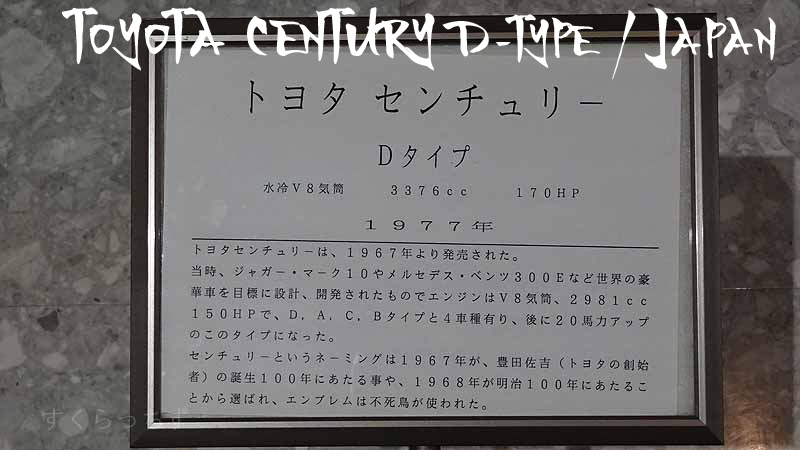 TOYOTA CENTURY D-TYPE / JAPAN
トヨタ センチュリー
Dタイプ
水冷V8気筒 3376cc 170HP
1977年
トヨタセンチュリーは、1967年より発売された。
当時、ジャガー・マーク10やメルセデス・ベンツ300Eなど世界の豪
華車を目標に設計、開発されたものでエンジンはV8気筒、2981cc
150HPで、D, A, C, Bタイプと4車種有り、後に20馬力アップ
のこのタイプになった。
センチュリーというネーミングは1967年が、豊田佐吉（トヨタの創始
者）の誕生100年にあたる事や、1968年が明治100年にあたるこ
とから選ばれ、エンブレムは不死鳥が使われた。
すくらっちす